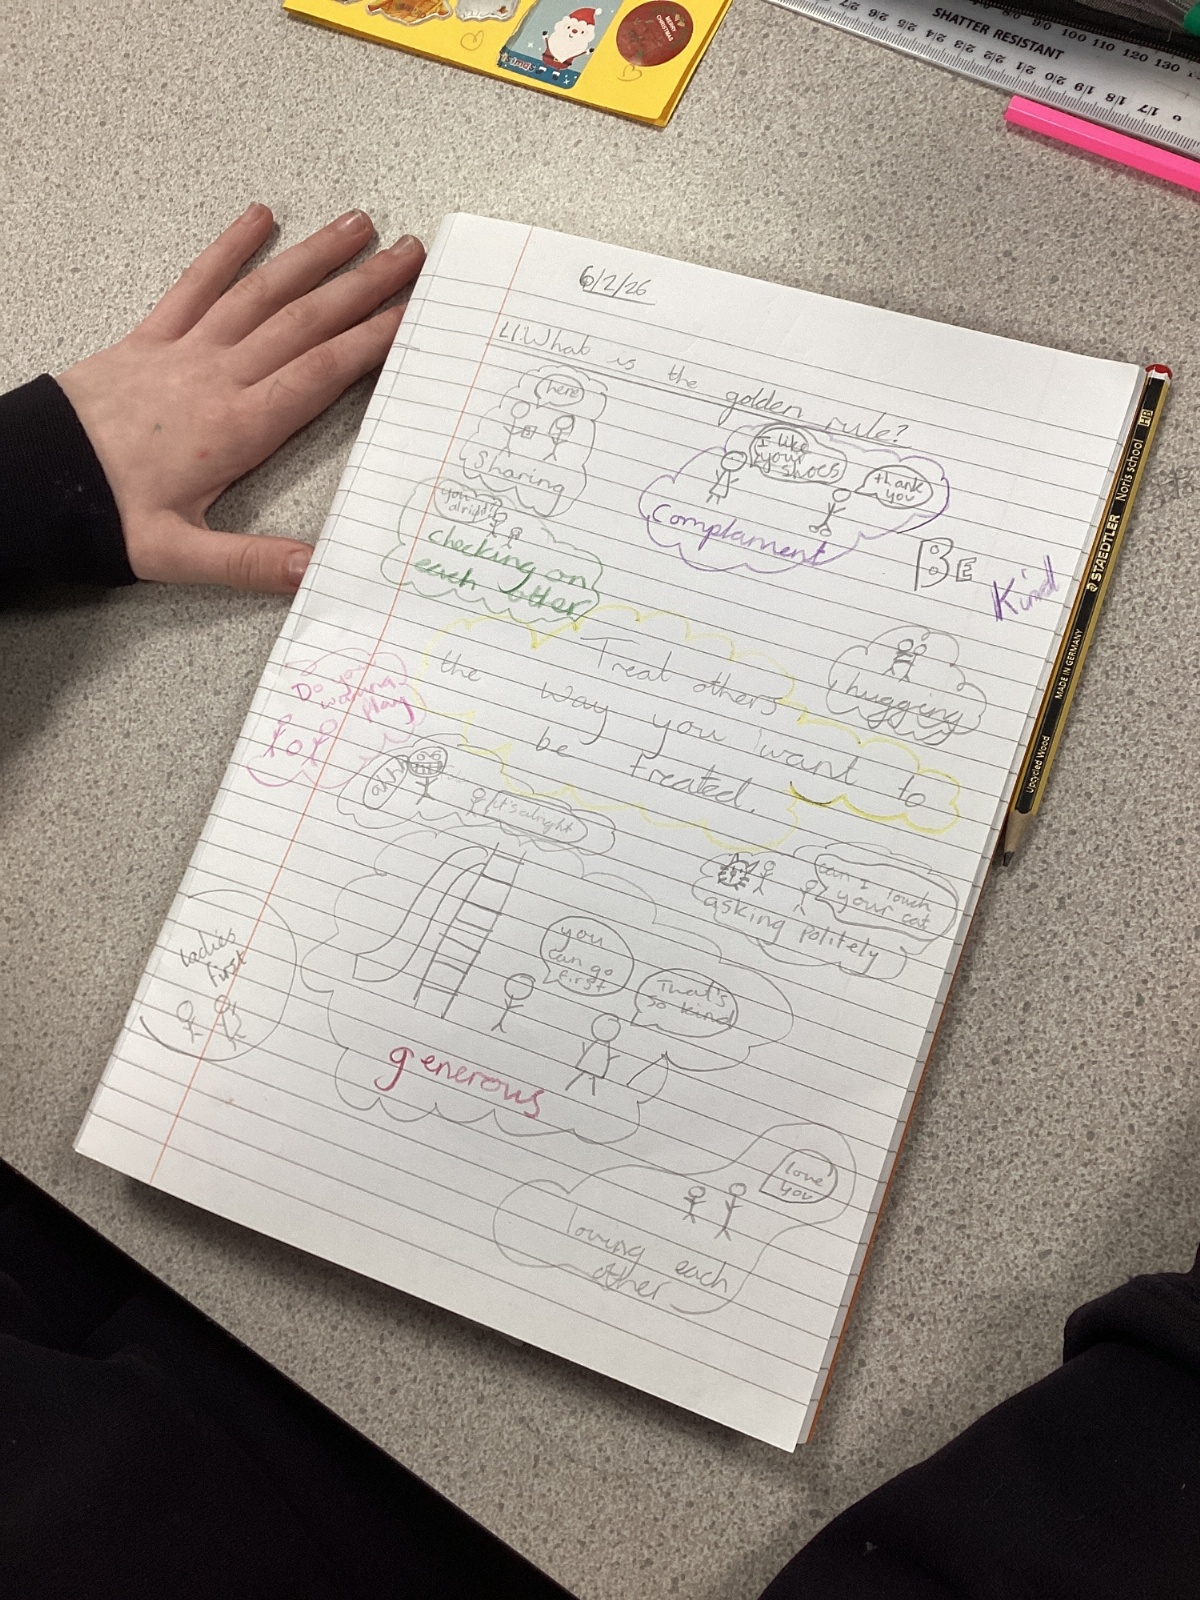 MERRY CHRISTMAS
SHATTER RESISTANT
100 110 120 130
27 26 25 24 23 22 21 20 19 18 17
6/2/26
LI: What is the golden rule?
here
Sharing
I like
your
shoes
thank
you
Complament
you
alright?
checking on
each other
BE
Kind
Treat others
the way you want to
be treated.
hugging
Do you
wanna
play
ahh
it's alright
can I touch
your cat
asking politely
ladies
first
you
can go
first
That's
so kind
generous
love
you
loving each
other
STAEDTLER Noris school HB
MADE IN GERMANY
Upcycled Wood